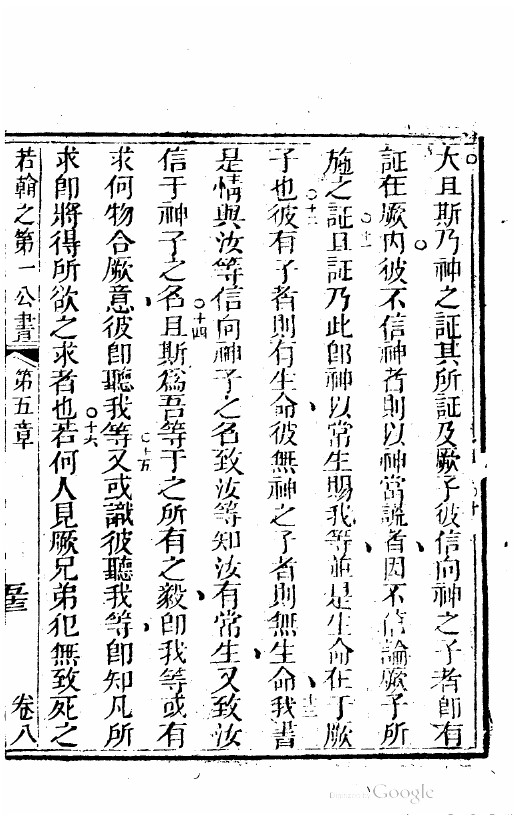 大且斯乃神之証其所証及厥子彼信向神之子者卽有
証在厥內彼不信神者則以神當說者因不信論厥子所
施之証且証乃此卽神以常生賜我等並是生命在于厥
子也彼有子者則有生命彼無神之子者則無生命我書
是情與汝等信向神子之名致汝等知汝有常生又致汝
信于神子之名且斯爲吾等于之所有之毅卽我等或有
求何物合厥意彼卽聽我等又或識彼聽我等卽知凡所
求卽將得所欲之求者也若何人見厥兄弟犯無致死之
十一
十二
十三
十四
十五
十六
若翰之第一公書 第五章 卷八
Digitized by Google